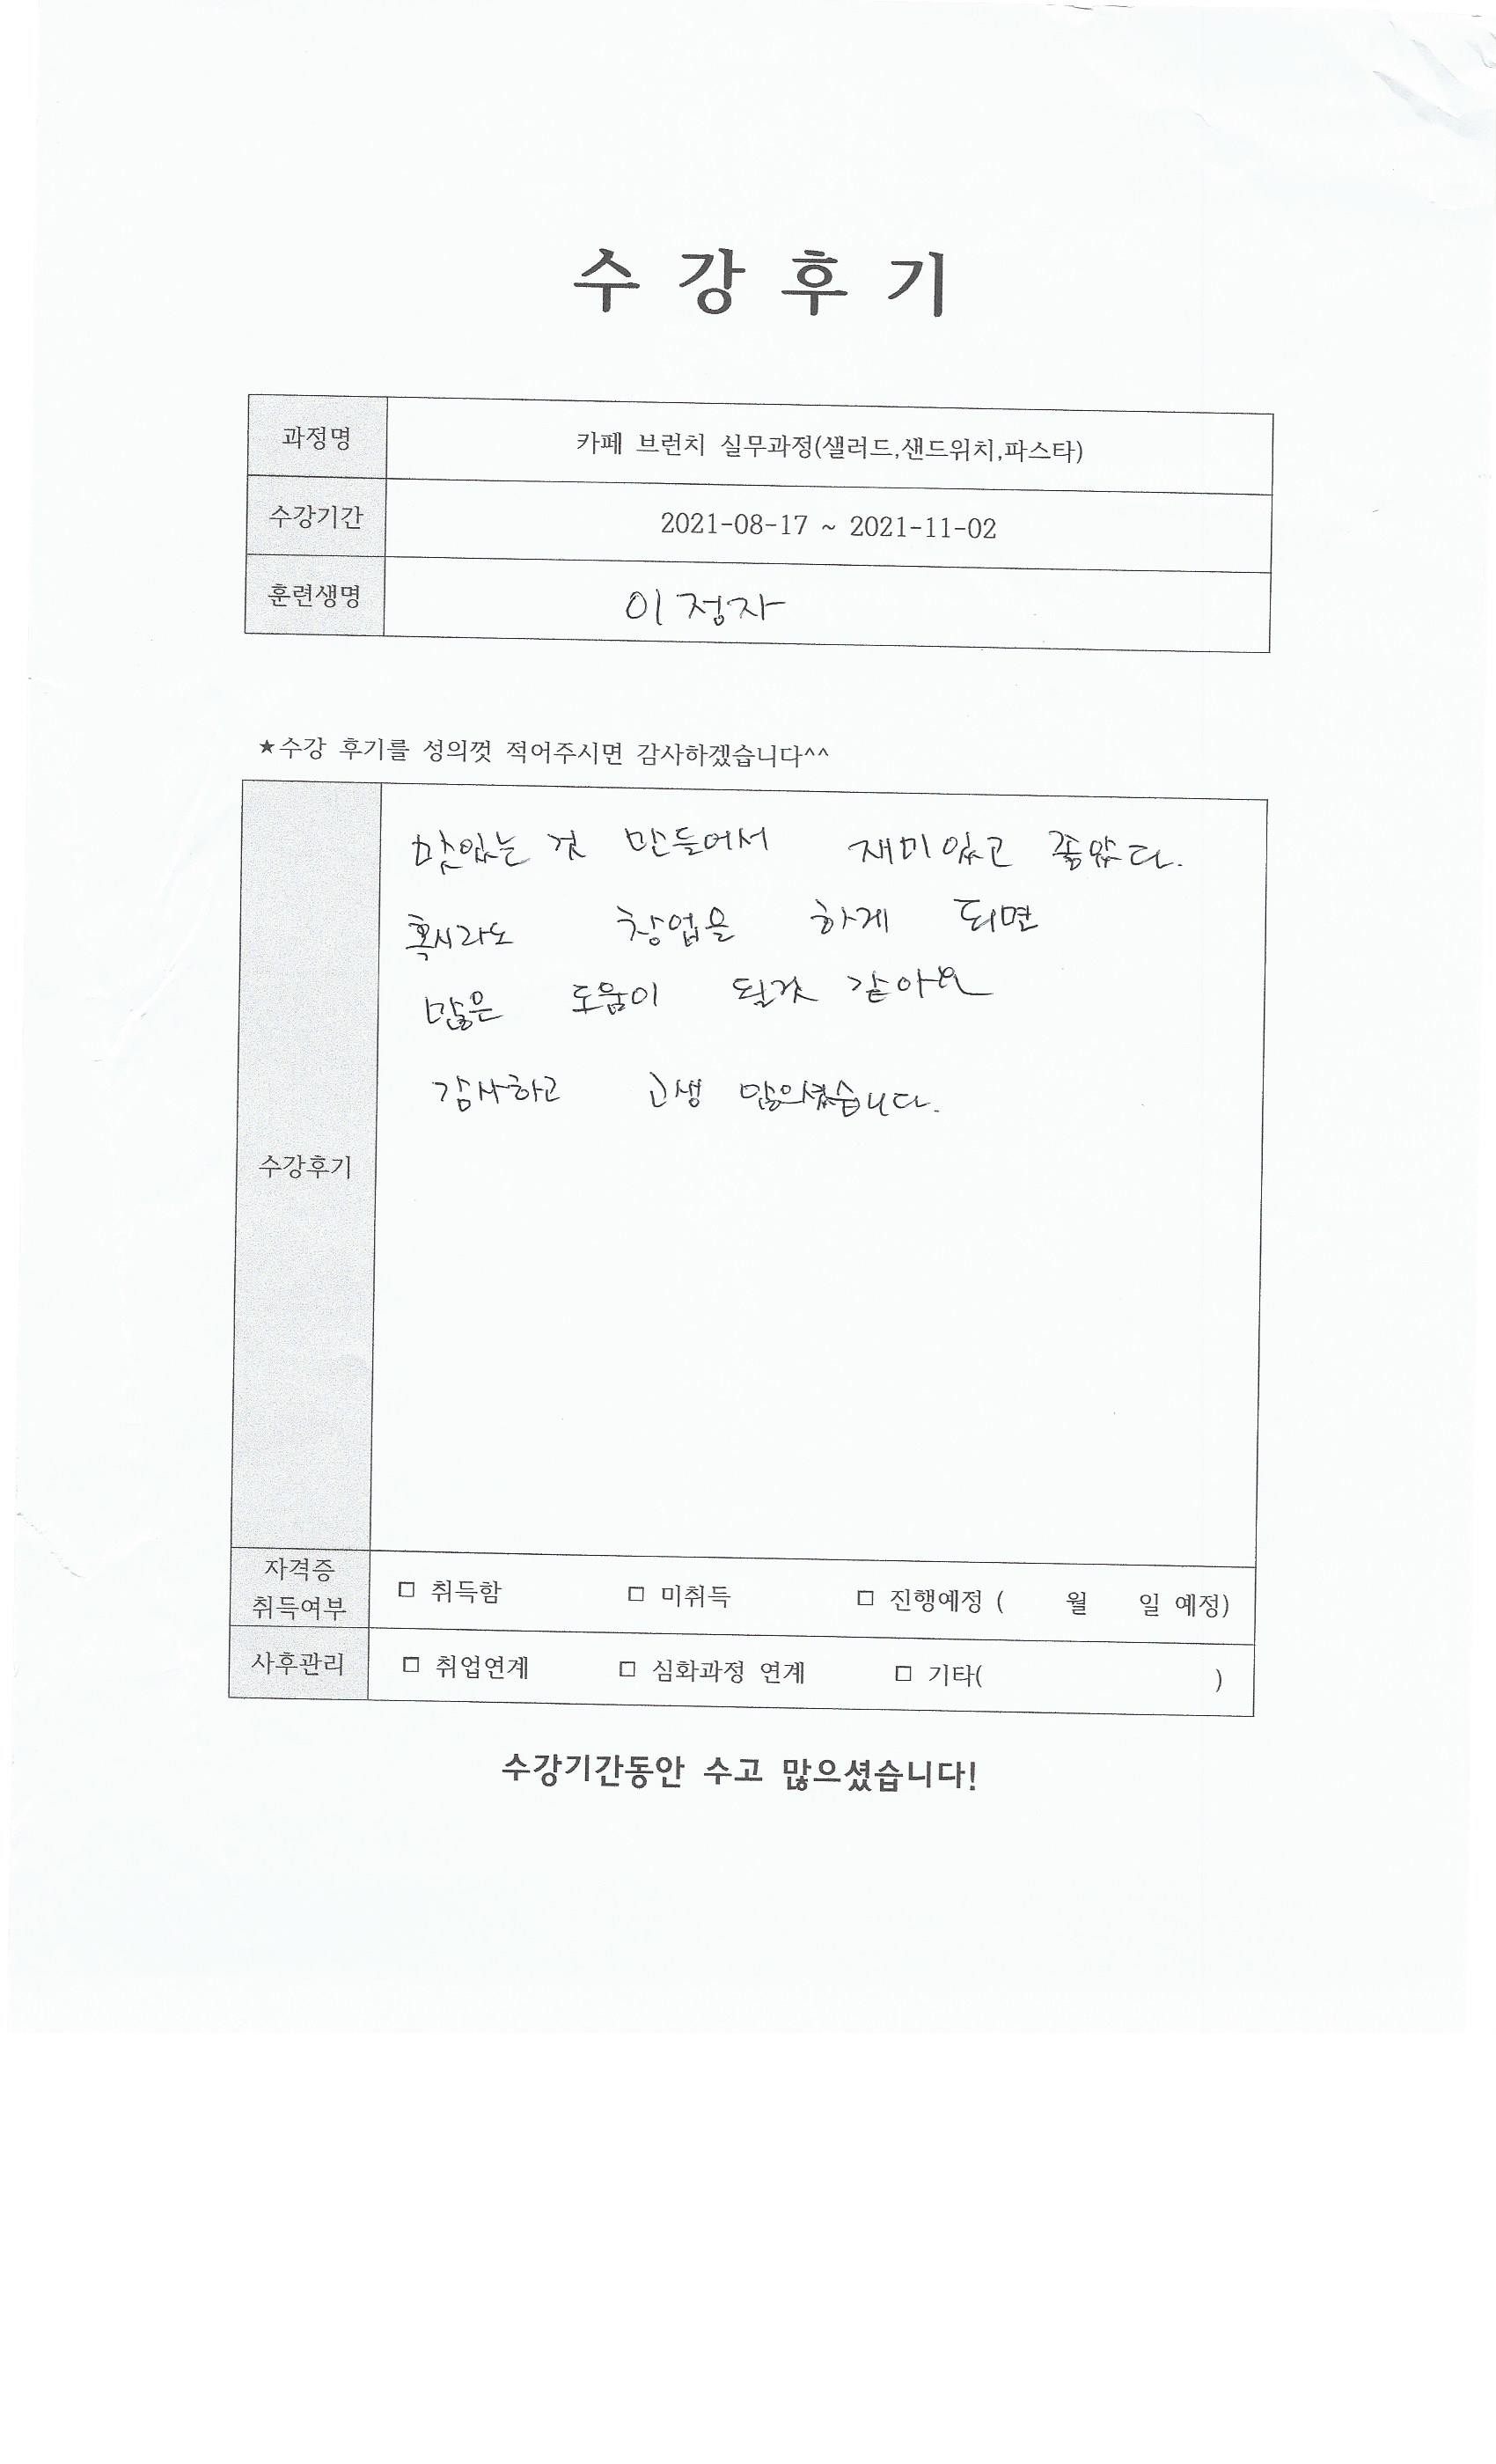 수 강 후 기
과정명 카페 브런치 실무과정(샐러드,샌드위치,파스타)
수강기간 2021-08-17 ~ 2021-11-02
훈련생명 이정자
★수강 후기를 성의껏 적어주시면 감사하겠습니다^^
맛있는 것 만들어서 재미있고 좋았다.
혹시라도 창업을 하게 되면
많은 도움이 될것 같아요
감사하고 고생 많의셨습니다.
수강후기
자격증
취득여부 □ 취득함 □ 미취득 □ 진행예정 ( 월 일 예정)
사후관리 □ 취업연계 □ 심화과정 연계 □ 기타( )
수강기간동안 수고 많으셨습니다!